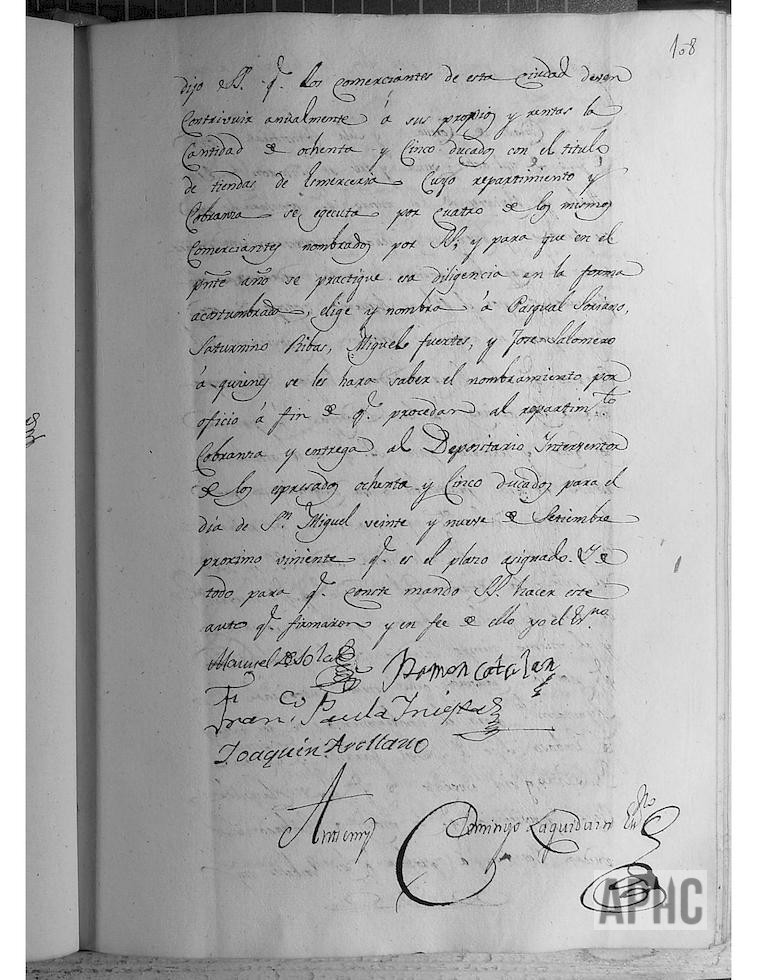 108
dijo SS. q.e los comerciantes de esta Ciudad deven
Contrivuir anualmente á sus propios y rentas la
Cantidad de ochenta y Cinco ducados con el titulo
de tiendas de Esmerceria Cuyo repartimiento y
Cobranza se egecuta por quatro de los mismos
Comerciantes nombrados por SS; y para que en el
pnte año se practique esa diligencia en la forma
acostumbrada, elige y nombra á Pasqual Soriano,
Saturnino Ribas, Miguel fuertes, y Jose Salomero
á quienes se les hara saber el nombramiento por
oficio á fin de q.e procedan al repartim.to
Cobranza y entrega al Depositario Interventor
de los epresados ochenta y Cinco ducados para el
dia de S.n Miguel veinte y nueve de Setiembre
proximo viniente q.e es el plazo asignado. Y de
todo para q.e conste mando SS. hacer este
auto q.e firmaron y en fee de ello yo el Es.no
Manuel de Sola
Ramon Catalan
Fran.co Paula Iniesta
Joaquin Arellano
Antemi
Domingo Laquidain Es.no
APHC